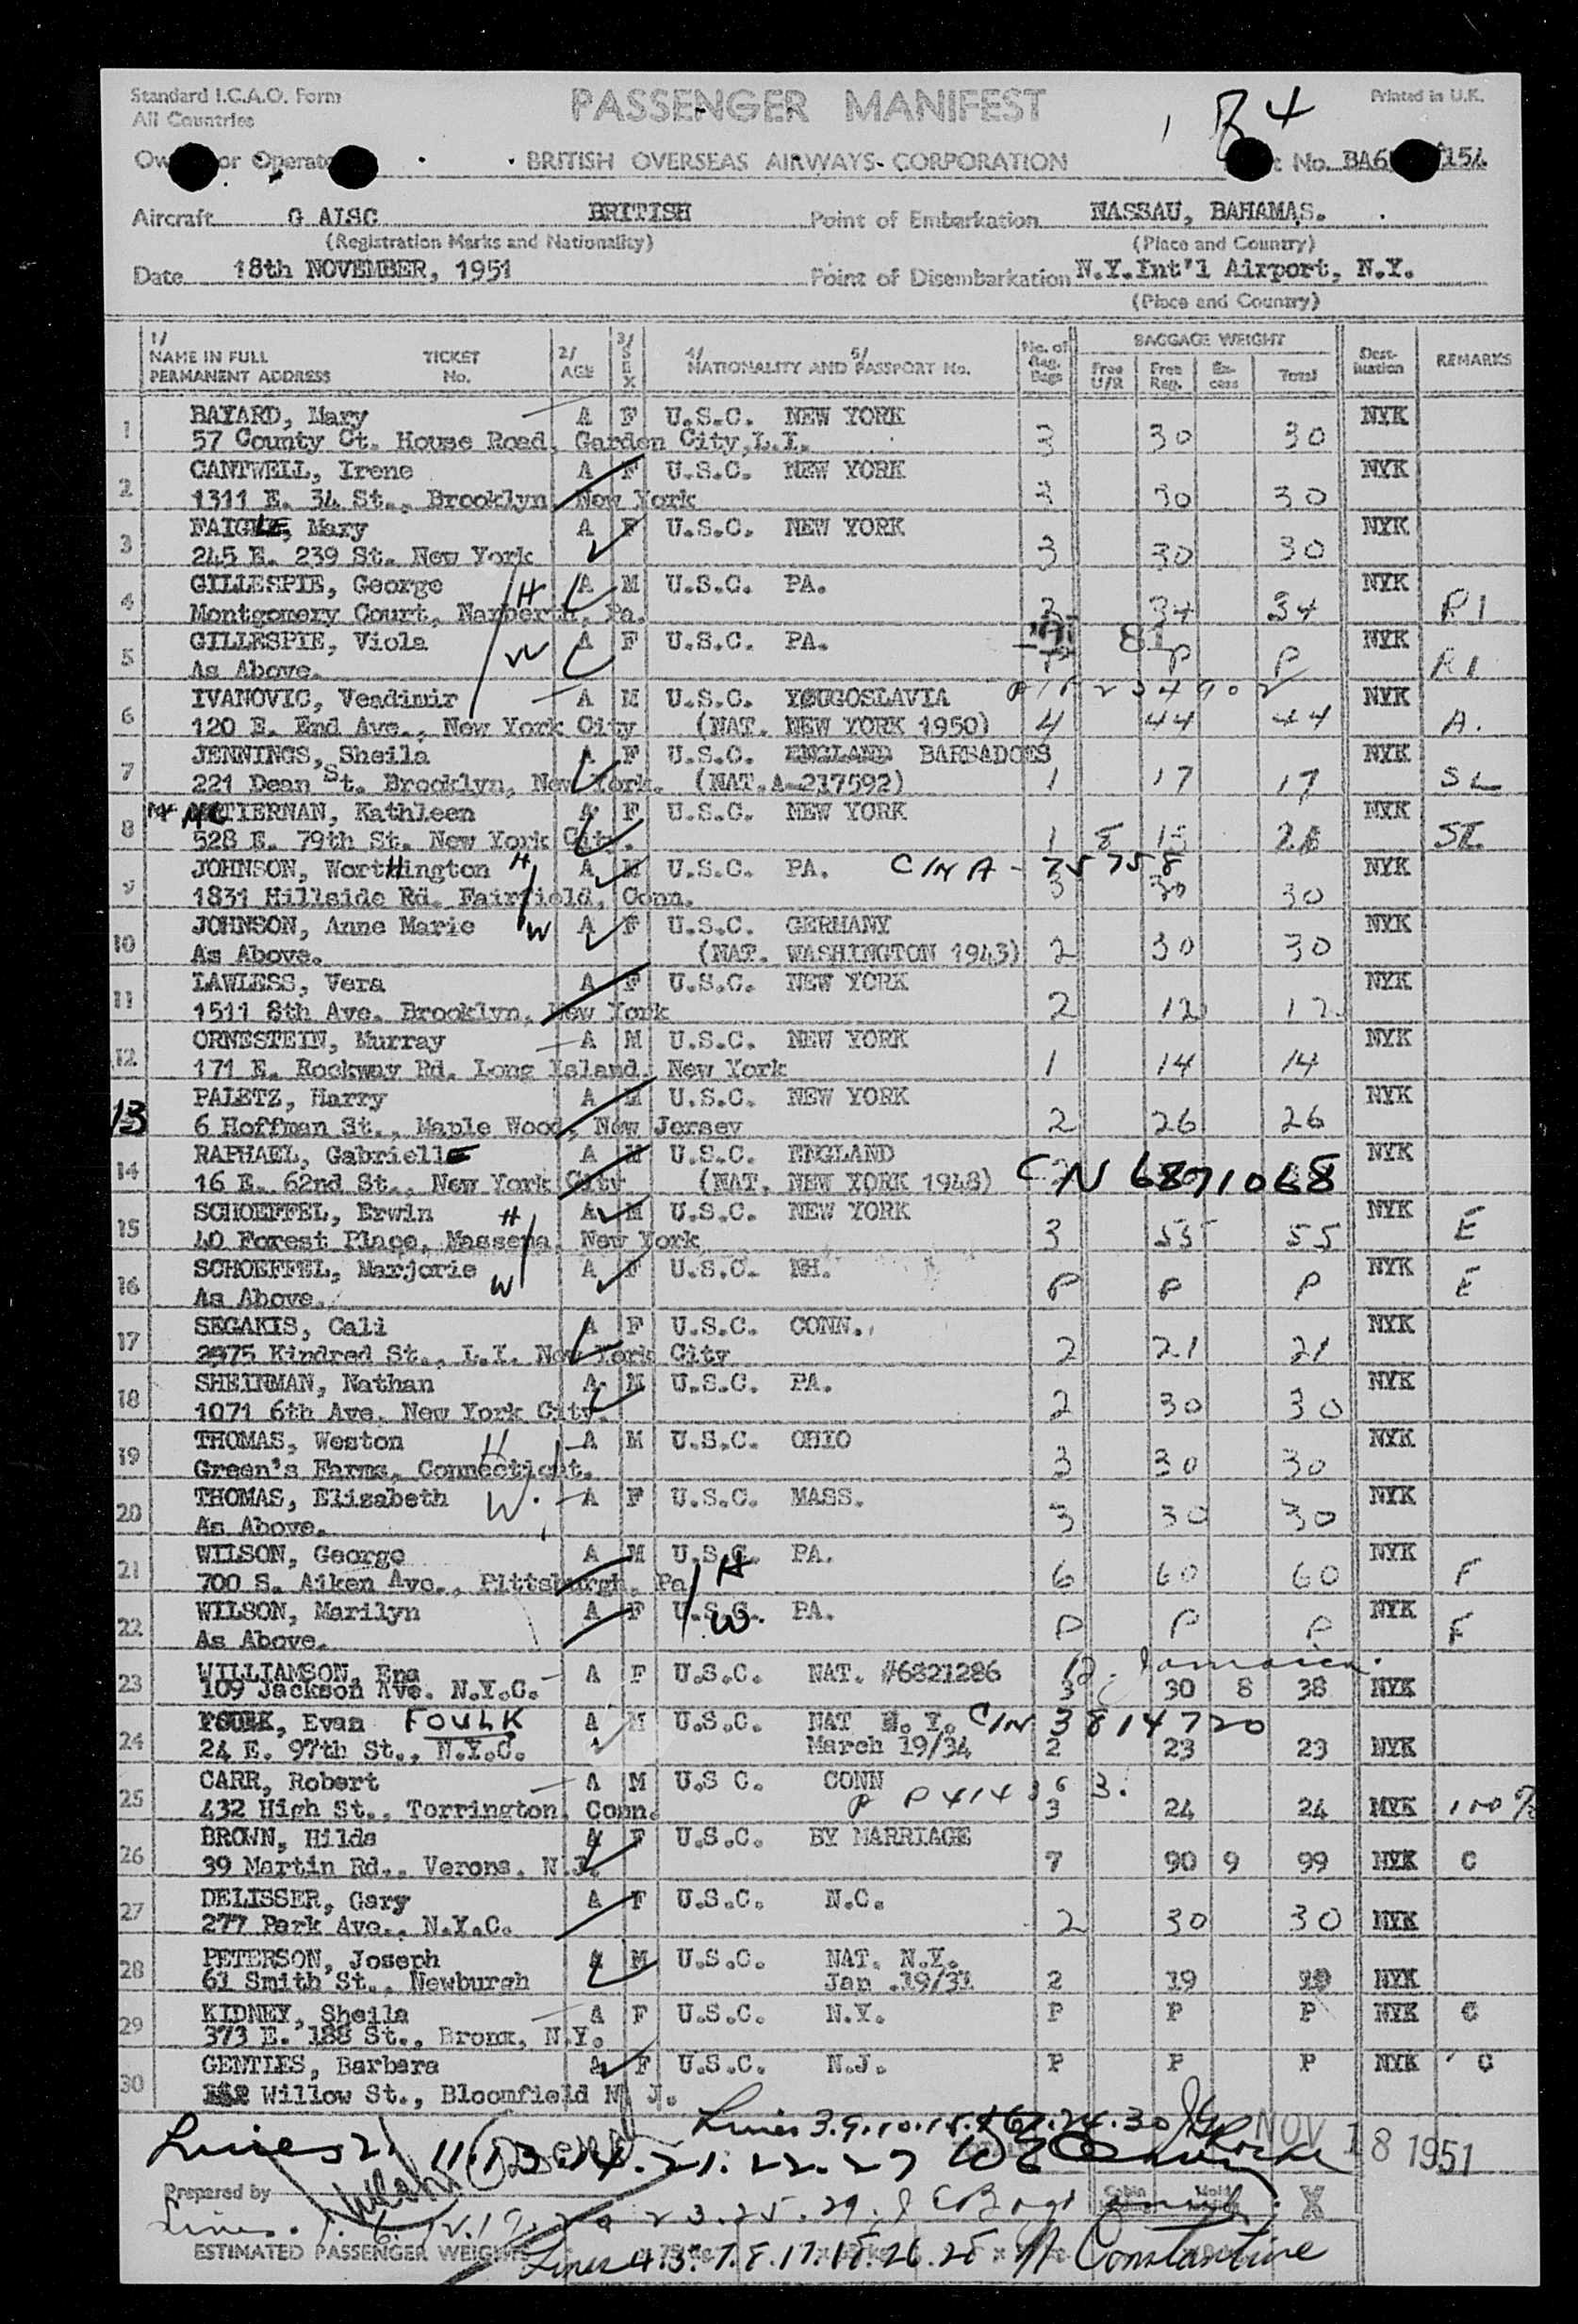 Standard I.C.A.O. Form
All Countries
PASSENGER MANIFEST
B 4
Printed in U.K.
BRITISH OVERSEAS AIRWAYS CORPORATION
No. BA6 154
Aircraft G AISC BRITISH Point of Embarkation NASSAU, BAHAMAS.
(Registration Marks and Nationality) (Place and Country)
Date 18th NOVEMBER, 1951 Point of Disembarkation N.Y.Int'l Airport, N.Y.
(Place and Country)
1/ NAME IN FULL PERMANENT ADDRESS TICKET No. 2/ AGE 3/ SEX 4/ NATIONALITY AND 5/ PASSPORT No. No. of Reg. Bags BAGGAGE WEIGHT Free U/R Free Reg. Ex-cess Total Dest-ination REMARKS
1 BAYARD, Mary A F U.S.C. NEW YORK NYK
57 County Ct. House Road, Garden City,L.I. 3 30 30
2 CANTWELL, Irene A F U.S.C. NEW YORK NYK
1311 E. 34 St., Brooklyn, New York 2 30 30
3 FAIGLE, Mary A F U.S.C. NEW YORK NYK
245 E. 239 St. New York 3 30 30
4 GILLESPIE, George H A M U.S.C. PA. NYK
Montgomery Court, Narberth, Pa. 3 34 34 P1
5 GILLESPIE, Viola W A F U.S.C. PA. 81 NYK
As Above. P P P P1
6 IVANOVIC, Veadimir A M U.S.C. YOUGOSLAVIA NYK
120 E. End Ave., New York City (NAT. NEW YORK 1950) 4 44 44 A.
7 JENNINGS, Sheila A F U.S.C. ENGLAND BARBADOES NYK
221 Dean St. Brooklyn, New York. (NAT.A-217592) 1 17 17 SL
8 McTIERNAN, Kathleen A F U.S.C. NEW YORK NYK
528 E. 79th St. New York City. 1 8
9 JOHNSON, WortHington H A M U.S.C. PA. C/N A-75758 NYK
1831 Hillside Rd. Fairfield, Conn. 3 30 30
10 JOHNSON, Anne Marie W A F U.S.C. GERMANY NYK
As Above. (NAT. WASHINGTON 1943) 2 30 30
11 LAWLESS, Vera A F U.S.C. NEW YORK NYK
1511 8th Ave. Brooklyn, New York 2 12 12
12 ORNESTEIN, Murray A M U.S.C. NEW YORK NYK
171 E. Rockway Rd. Long Island, New York 1 14 14
13 PALETZ, Harry A M U.S.C. NEW YORK NYK
6 Hoffman St., Maple Wood, New Jersey 2 26 26
14 RAPHAEL, GabriellE A M U.S.C. ENGLAND NYK
16 E. 62nd St., New York City (NAT. NEW YORK 1948) CN 6871068
15 SCHOEFFEL, Erwin H A M U.S.C. NEW YORK NYK E
40 Forest Place, Massena, New York 3 55 55
16 SCHOEFFEL, Marjorie W A F U.S.C. NH. NYK E
As Above. P P P
17 SEGAKIS, Cali A F U.S.C. CONN. NYK
2975 Kindred St., L.I. New York City 2 21 21
18 SHEINMAN, Nathan A M U.S.C. PA. NYK
1071 6th Ave. New York City. 2 30 30
19 THOMAS, Weston H A M U.S.C. OHIO NYK
Green's Farms, Connecticut. 3 30 30
20 THOMAS, Elizabeth W. A F U.S.C. MASS. NYK
As Above. 3 30 30
21 WILSON, George A M U.S.C. PA. H NYK
700 S. Aiken Ave., Pittsburgh, Pa 6 60 60 F
22 WILSON, Marilyn A F U.S.C. PA. W. NYK
As Above. P P P F
23 WILLIAMSON, Ena A F U.S.C. NAT. #6821286 Jamaica.
109 Jackson Ave. N.Y.C. 3 30 8 38 NYK
24 FOULK, Evan FOULK A M U.S.C. NAT N.Y. C/N 3814720
24 E. 97th St., N.Y.C. March 19/34 2 23 23 NYK
25 CARR, Robert A M U.S C. CONN
432 High St., Torrington, Conn. 3 24 24 NYK
26 BROWN, Hilda A F U.S.C. BY MARRIAGE
39 Martin Rd., Verona, N.J. 7 90 9 99 NYK C
27 DELISSER, Gary A F U.S.C. N.C.
277 Park Ave., N.Y.C. 2 30 30 NYK
28 PETERSON, Joseph A M U.S.C. NAT. N.Y.
61 Smith St., Newburgh Jan .19/31 2 19 19 NYK
29 KIDNEY, Sheila A F U.S.C. N.Y. P P P NYK C
373 E. 188 St., Bronx, N.Y.
30 GENTIES, Barbara A F U.S.C. N.J. P P P NYK C
Willow St., Bloomfield N J.
Lines 3.9.10.15.16.24.30
NOV 18 1951
Lines 2. 11.13.14.21.22.27
Prepared by
Lines. 1. 6. 12. 19. 20 23.25.29.
ESTIMATED PASSENGER WEIGHTS
Lines 4.5.7.8.17.18.26.28 Constantine